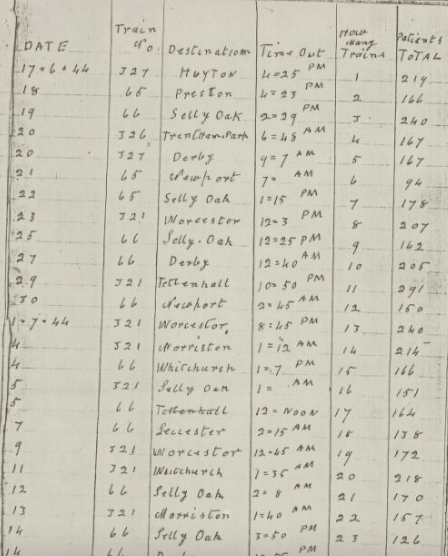 DATE Train No Destination Time Out How Many Trains Patients TOTAL
17=6=44 327 HUYTON 4=25 PM 1 219
18 65 Preston 4=23 PM 2 166
19 66 Selly Oak 2=29 PM 3 240
20 326 Trentham Park 6=48 AM 4 167
20 327 Derby 9=7 AM 5 167
21 65 Newport 7= AM 6 94
22 65 Selly Oak 1=15 PM 7 178
23 321 Worcester 12=3 PM 8 207
25 66 Selly-Oak 12=25 PM 9 142
27 66 Derby 12=40 AM 10 205
29 321 Tettenhall 10=50 PM 11 291
30 66 Newport 2=45 AM 12 150
1=7=44 321 Worcestor 8=45 PM 13 240
4 321 Morriston 1=12 AM 14 214
4 66 Whitchurch 1=7 PM 15 166
5 321 Selly Oak 1= AM 16 151
5 66 Tettenhall 12=NOON 17 164
7 66 Leicester 2=15 AM 18 138
9 321 Worcestor 12=45 AM 19 172
11 321 Whitchurch 7=35 AM 20 218
12 66 Selly Oak 2=8 AM 21 170
13 321 Morriston 1=40 AM 22 157
14 66 Selly Oak 3=50 PM 23 126
14 66 PM